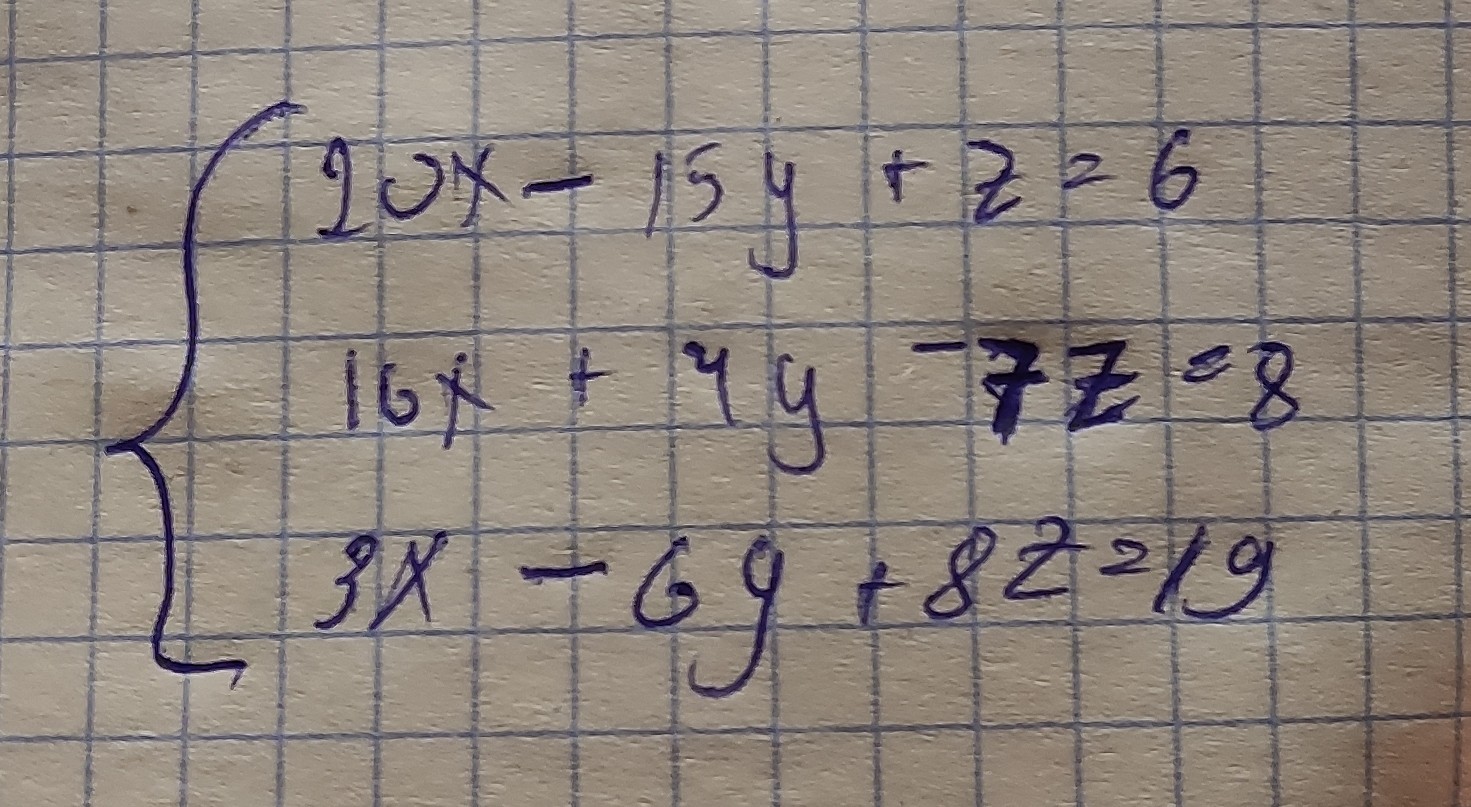 20x - 15y + z = 6
16x + 4y - 7z = 8
3x - 6y + 8z = 19